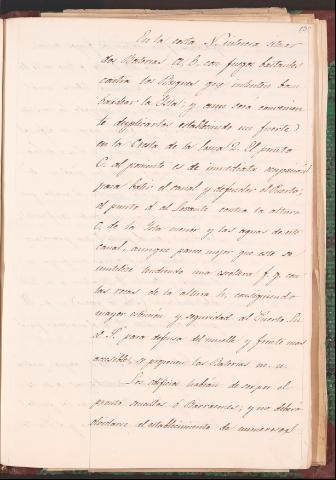 En la costa N. interesa situar
dos Baterias a, b, con fuegos bastantes
contra los Buques que intenten bom
bardear la Isla; y aun sera convenien
te duplicarlas estableciendo un fuerte
en la Cresta de la loma 2. El punto
C. al poniente es de inmediata ocupación
para batir el canal y defender el Puerto;
el punto d. al levante contra la altura
e. de la Isla menor y las aguas de este
canal, aunque parece mejor que este se
inutilice tendiendo una escollera f. g. con
las rocas de la altura h, consiguiendo
mayor estension y seguridad al Puerto.
y para defensa del muelle y frente mas
accesible, se proponen las Baterias m. n.
Los edificios habrán de ser por el
pronto sencillos ó Barracones, y no deberá
olvidarse el establecimiento de